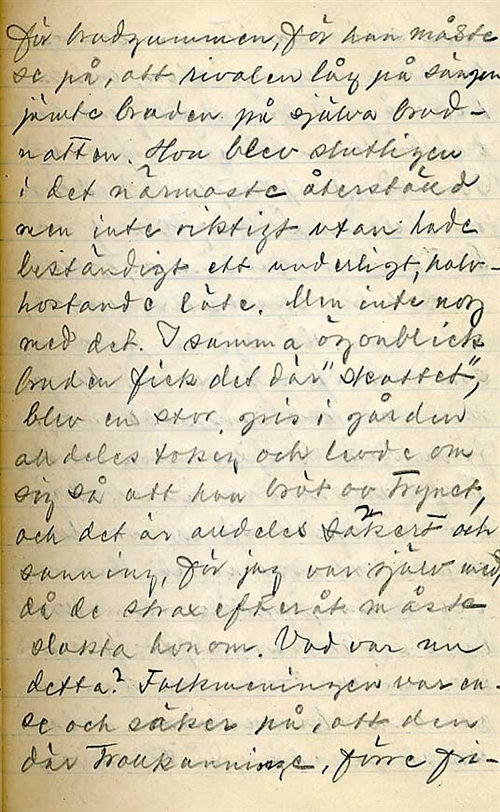 för brudgummen, för han måste
se på, att rivalen låg på sängen
jämte bruden på själva brud-
natten. Hon blev slutligen
i det närmaste återställd
men inte riktigt utan hade
beständigt ett underligt, halv-
hostande läte. Men inte nog
med det. I samma ögonblick
bruden fick det där "skottet",
blev en stor gris i gården
alldeles tokig och levde om
sig så att han bröt av trynet,
och det är alldeles säkert och
sanning, för jag var själv med
då de strax efteråt måste
slakta honom. Vad var nu
detta? Folkmeningen var en-
se och säker på, att den
där trollkunnige, förre fri-